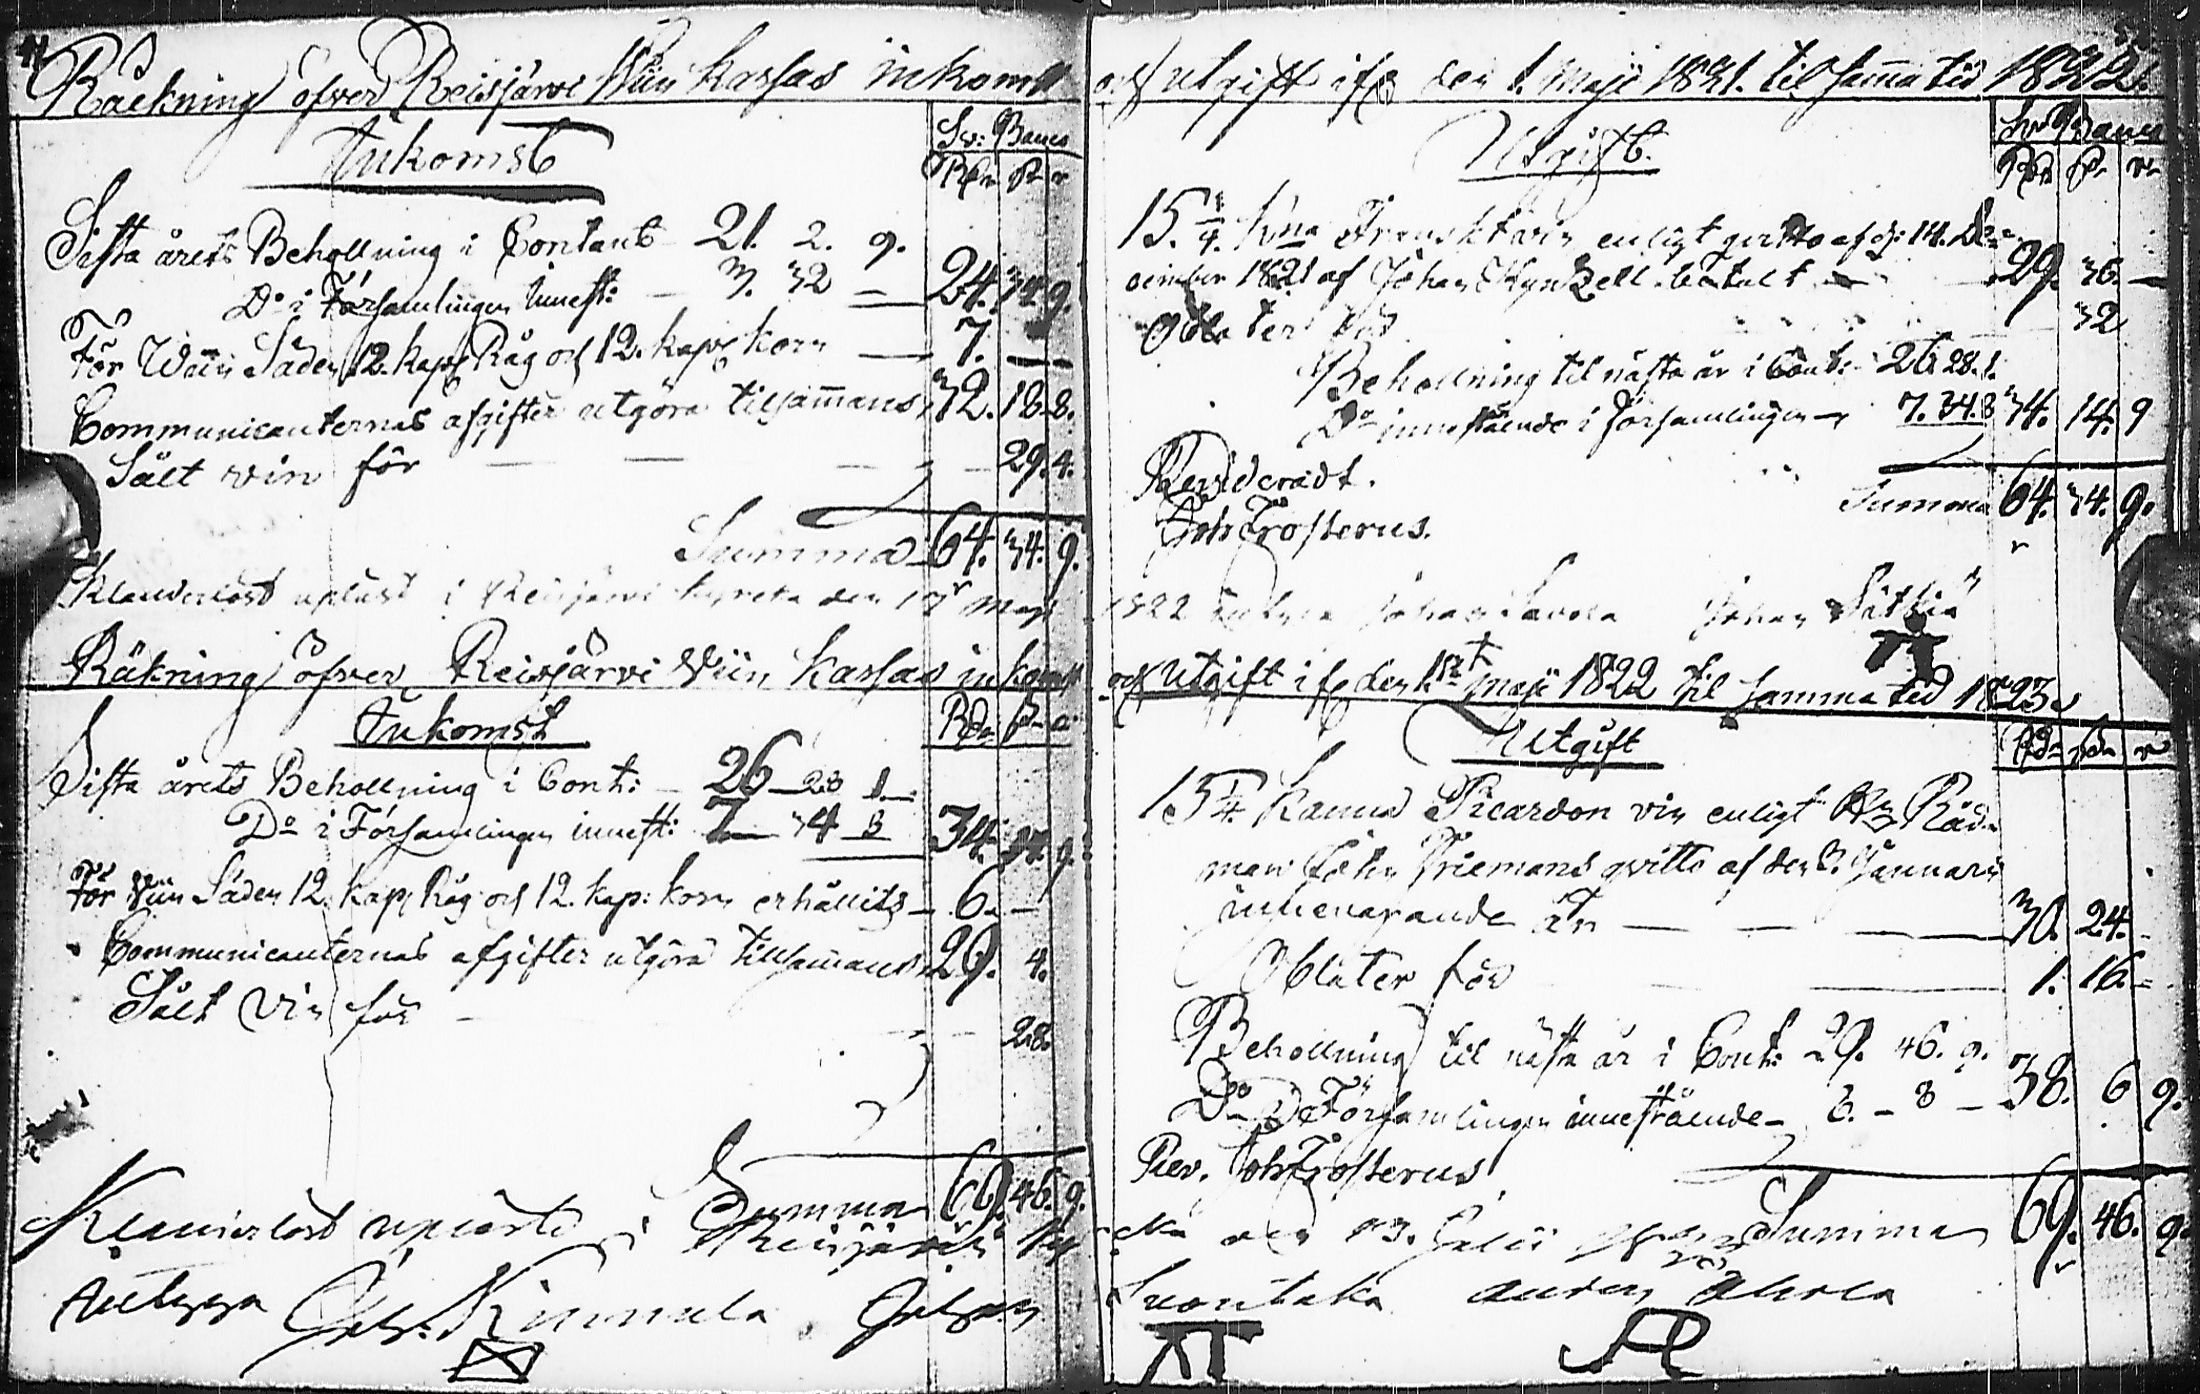 Räckning öfver Reisjärvi Wiin Kassas inkomst
Inkomst
Sv: Banco
Rdr s r
Sista årets Behollning i Contant 21. 2. 9.
Do i Församlingen innest: 3. 32 — 24. 34. 9.
För Wiin Säden 12. kap Råg och 12. kapp korn — 7. —
Communicanternas afgifter utgöra tilsammans 32. 18. 8.
Sålt vin för — 29. 4.
Summa 64. 34. 9.
Klanderlöst upläst i Reisjärvi kyrcka den 17 Maji
Räkning öfver Reisjärvi Wiin Kassas inkomst
Inkomst
Rdr s r
Sista årets Behollning i Cont: — 26 — 28 1
Do i Församlingen innest: 7 — 34 8 34. 14. 9.
För Wiin Säden 12. kap Råg och 12. kap: korn erhållits — 6. —
Communicanternas afgifter utgöra tillsammans 29. 4.
Sålt vin för — 28.
Summa 69. 46. 9.
Klanderlöst uplästt i Reisjärvi Kyr
Johan Kinnula Johan
och Utgift ifr den 1. Maji 1821. til samma tid 1822.
Utgift.
Sv: Banco
Rdr s r
15. 1/4. Kna Franskt vin enligt qvitto af d: 14. De-
cember 1821 af Johan Kynzell betalt — 29. 36. —
Oblater för 32
Behollning til nästa år i Cont: 26 28. 1.
Do innestående i Församlingen — 7. 34. 8 34. 14. 9
Revideradt.
Summa 64. 34. 9.
Joh Frosterus.
1822 Johan Savola Johan
och Utgift ifr den 1st Maji 1822 til samma tid 1823.
Utgift
Rdr s r
15 1/4 Kanna Picardon vin enligt Råd-
man Friemans qvitto af den 8. Januarii
innevarande år — 30. 24. -
Oblater för 1. 16. -
Behollning til nästa år i Cont: 29. 46. 9.
Do Församlingen innestående — 8. — 8 — 38. 6 9.
Rev. Joh Frosterus
cka den 13. Julii Summa 69. 46. 9.
Anders Ahola